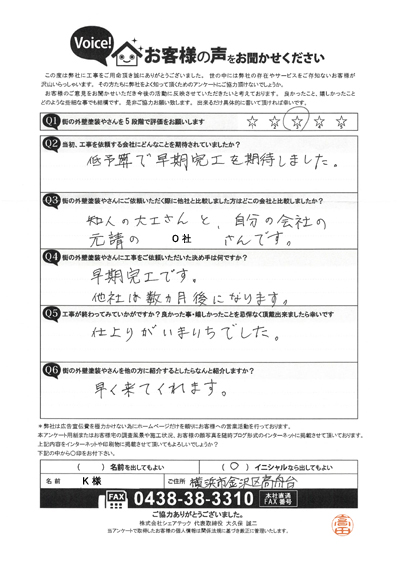 Voice!
お客様の声をお聞かせください
この度は弊社に工事をご用命頂き誠にありがとうございました。世の中には弊社の存在やサービスをご存知ないお客様が
沢山いらっしゃいます。その方たちに弊社をよく知って頂くためのアンケートにご協力頂けないでしょうか。
お客様のご意見をお聞かせいただき今後の活動に反映させていただきたいと考えております。良かったこと、嬉しかったこと
どのような些細な事でも結構です。是非ご協力お願い致します。出来るだけ具体的に書いて頂ければ幸いです。
Q1 街の外壁塗装やさんを5段階で評価をお願いします ☆ ☆ ☆ ☆ ☆
Q2 当初、工事を依頼する会社にどんなことを期待されていましたか？
低予算で早期完工を期待しました。
Q3 街の外壁塗装やさんにご依頼いただく際に他社と比較しました方はどこの会社と比較しましたか？
知人の大工さんと、自分の会社の
元請の O社 さんです。
Q4 街の外壁塗装やさんに工事をご依頼いただいた決め手は何ですか？
早期完工です。
他社は数ヵ月後になります。
Q5 工事が終わってみていかがですか？良かった事・嬉しかったことを忌憚なく頂戴出来ましたら幸いです
仕上りがいまいちでした。
Q6 街の外壁塗装やさんを他の方に紹介するとしたらなんと紹介しますか？
早く来てくれます。
＊弊社は広告宣伝費を極力かけない為にホームページだけを頼りにお客様への営業活動を行っております。
本アンケート用紙またはお客様宅の調査風景や施工状況、お客様の顔写真を随時ブログ形式のインターネットに掲載させて頂いております。
上記内容をインターネットや印刷物に掲載させて頂いてもよろしいでしょうか？
下記の中から〇印をお付下さい。
（　）名前を出してもよい （〇）イニシャルなら出してもよい
名前 K様 ご住所 横浜市金沢区高舟台
FAX 0438-38-3310 本社直通 FAX番号
ご協力ありがとうございました。
株式会社シェアテック 代表取締役 大久保 誠二
当アンケートで取得したお客様の個人情報は関係法規に基づき厳正に管理いたします。